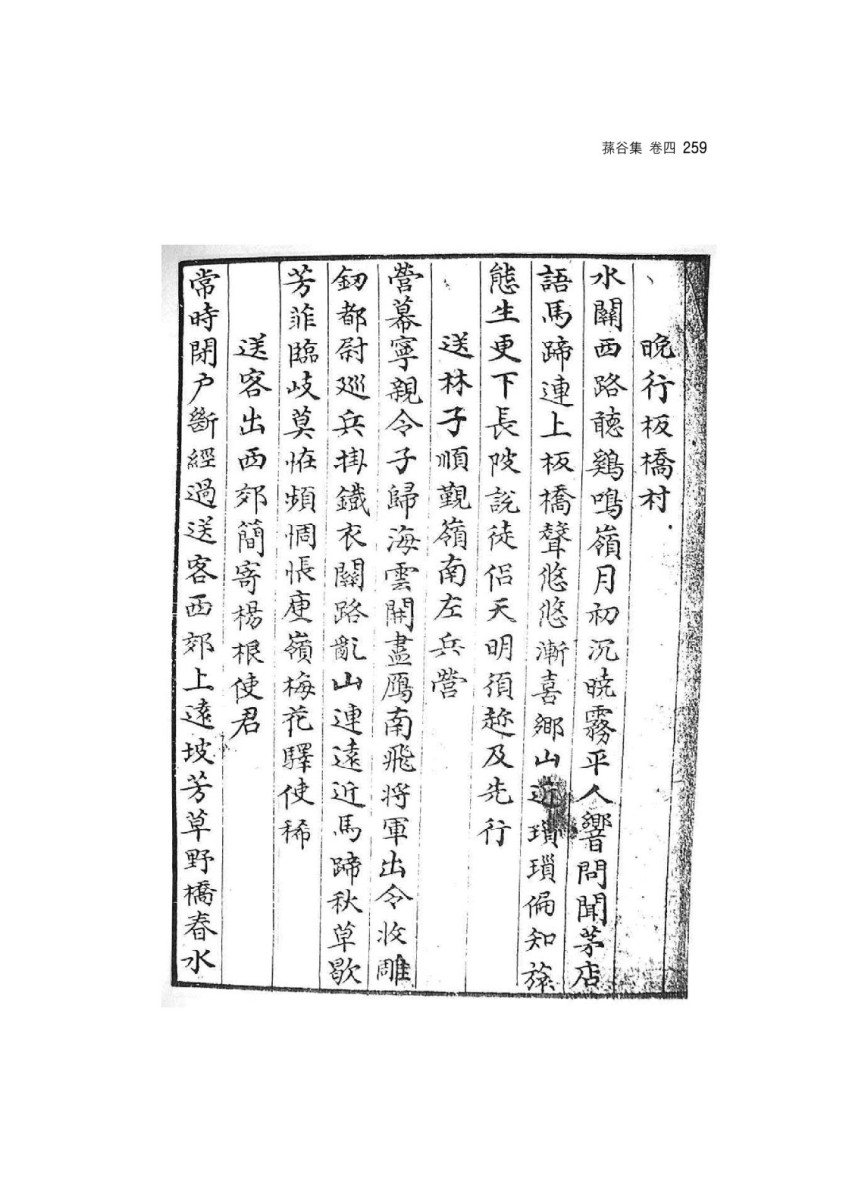 蓀谷集 卷四 259
晚行板橋村
水關西路聽鷄鳴嶺月初沉曉霧平人響問聞茅店
語馬蹄連上板橋聲悠悠漸喜鄉山近瑣瑣偏知旅
態生更下長陂說徒侶天明須趂及先行
送林子順覲嶺南左兵營
營幕寧親令子歸海雲開盡鴈南飛將軍出令收雕
釰都尉巡兵掛鐵衣關路亂山連遠近馬蹄秋草歇
芳菲臨岐莫恠頻惆悵庾嶺梅花驛使稀
送客出西郊簡寄楊根使君
常時閉户斷經過送客西郊上遠坡芳草野橋春水